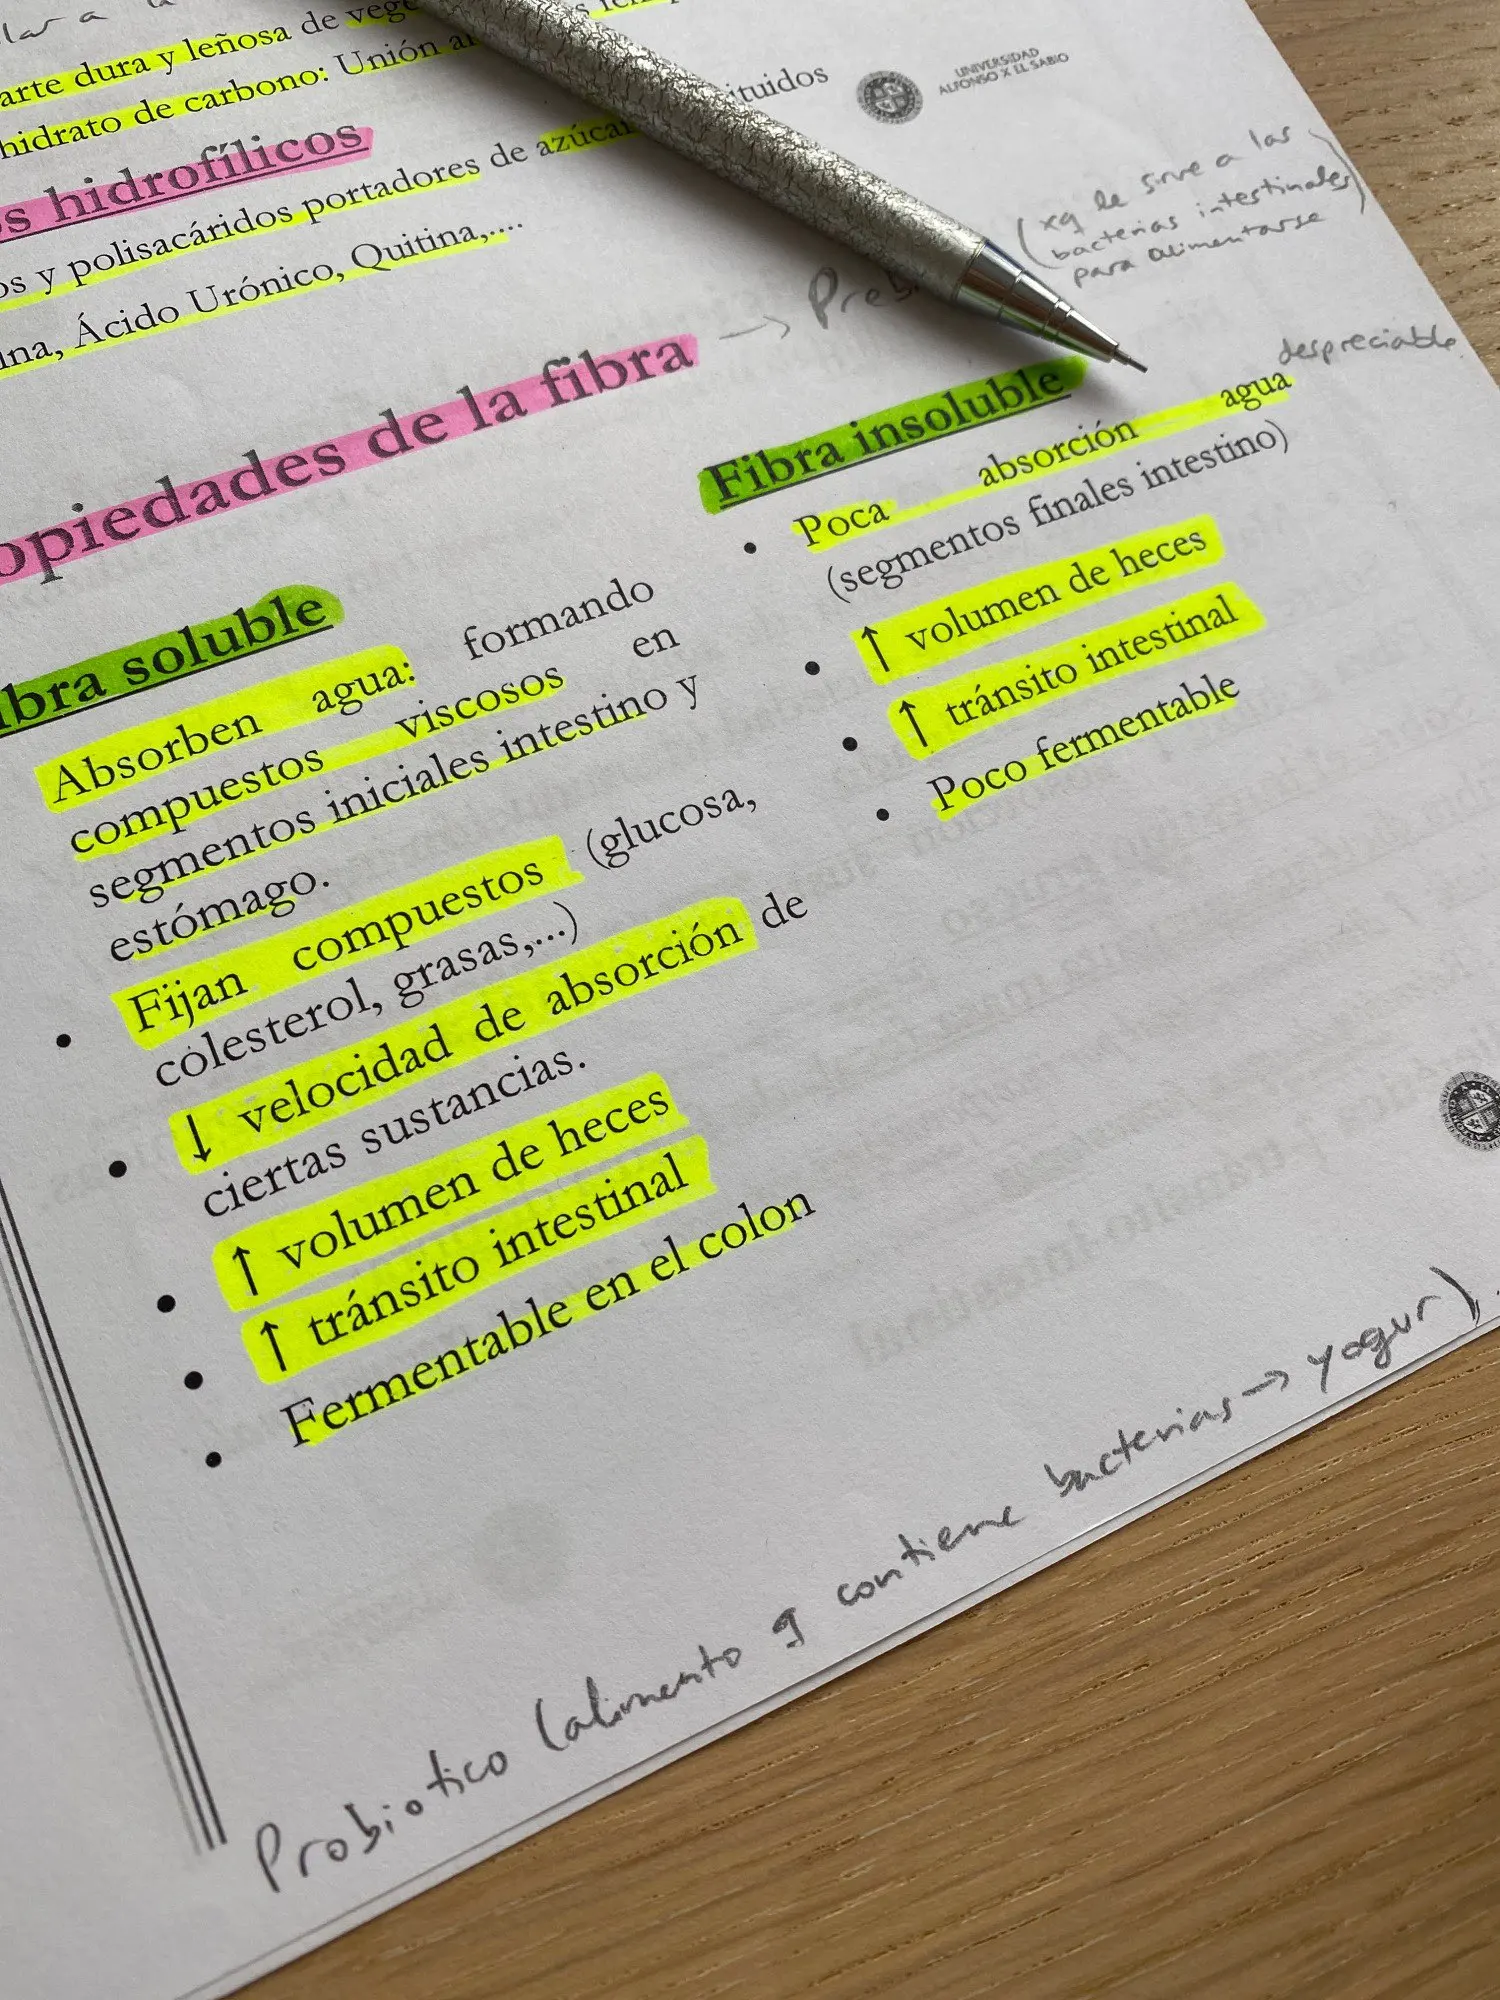 arte dura y leñosa de vege
hidrato de carbono: Unión
ituidos
UNIVERSIDAD
ALFONSO X EL SABIO
s hidrofílicos
os y polisacáridos portadores de azúca
ina, Ácido Urónico, Quitina,....
(xq le sirve a las
bacterias intestinales)
para alimentarse
opiedades de la fibra → Preb
ibra soluble
Absorben agua: formando
compuestos viscosos en
segmentos iniciales intestino y
estómago.
• Fijan compuestos (glucosa,
colesterol, grasas,...)
• ↓ velocidad de absorción de
ciertas sustancias.
• ↑ volumen de heces
• ↑ tránsito intestinal
• Fermentable en el colon
Fibra insoluble
despreciable.
• Poca absorción agua
(segmentos finales intestino)
• ↑ volumen de heces
• ↑ tránsito intestinal
• Poco fermentable
Probiotico (alimento q contiene bacterias → yogur).